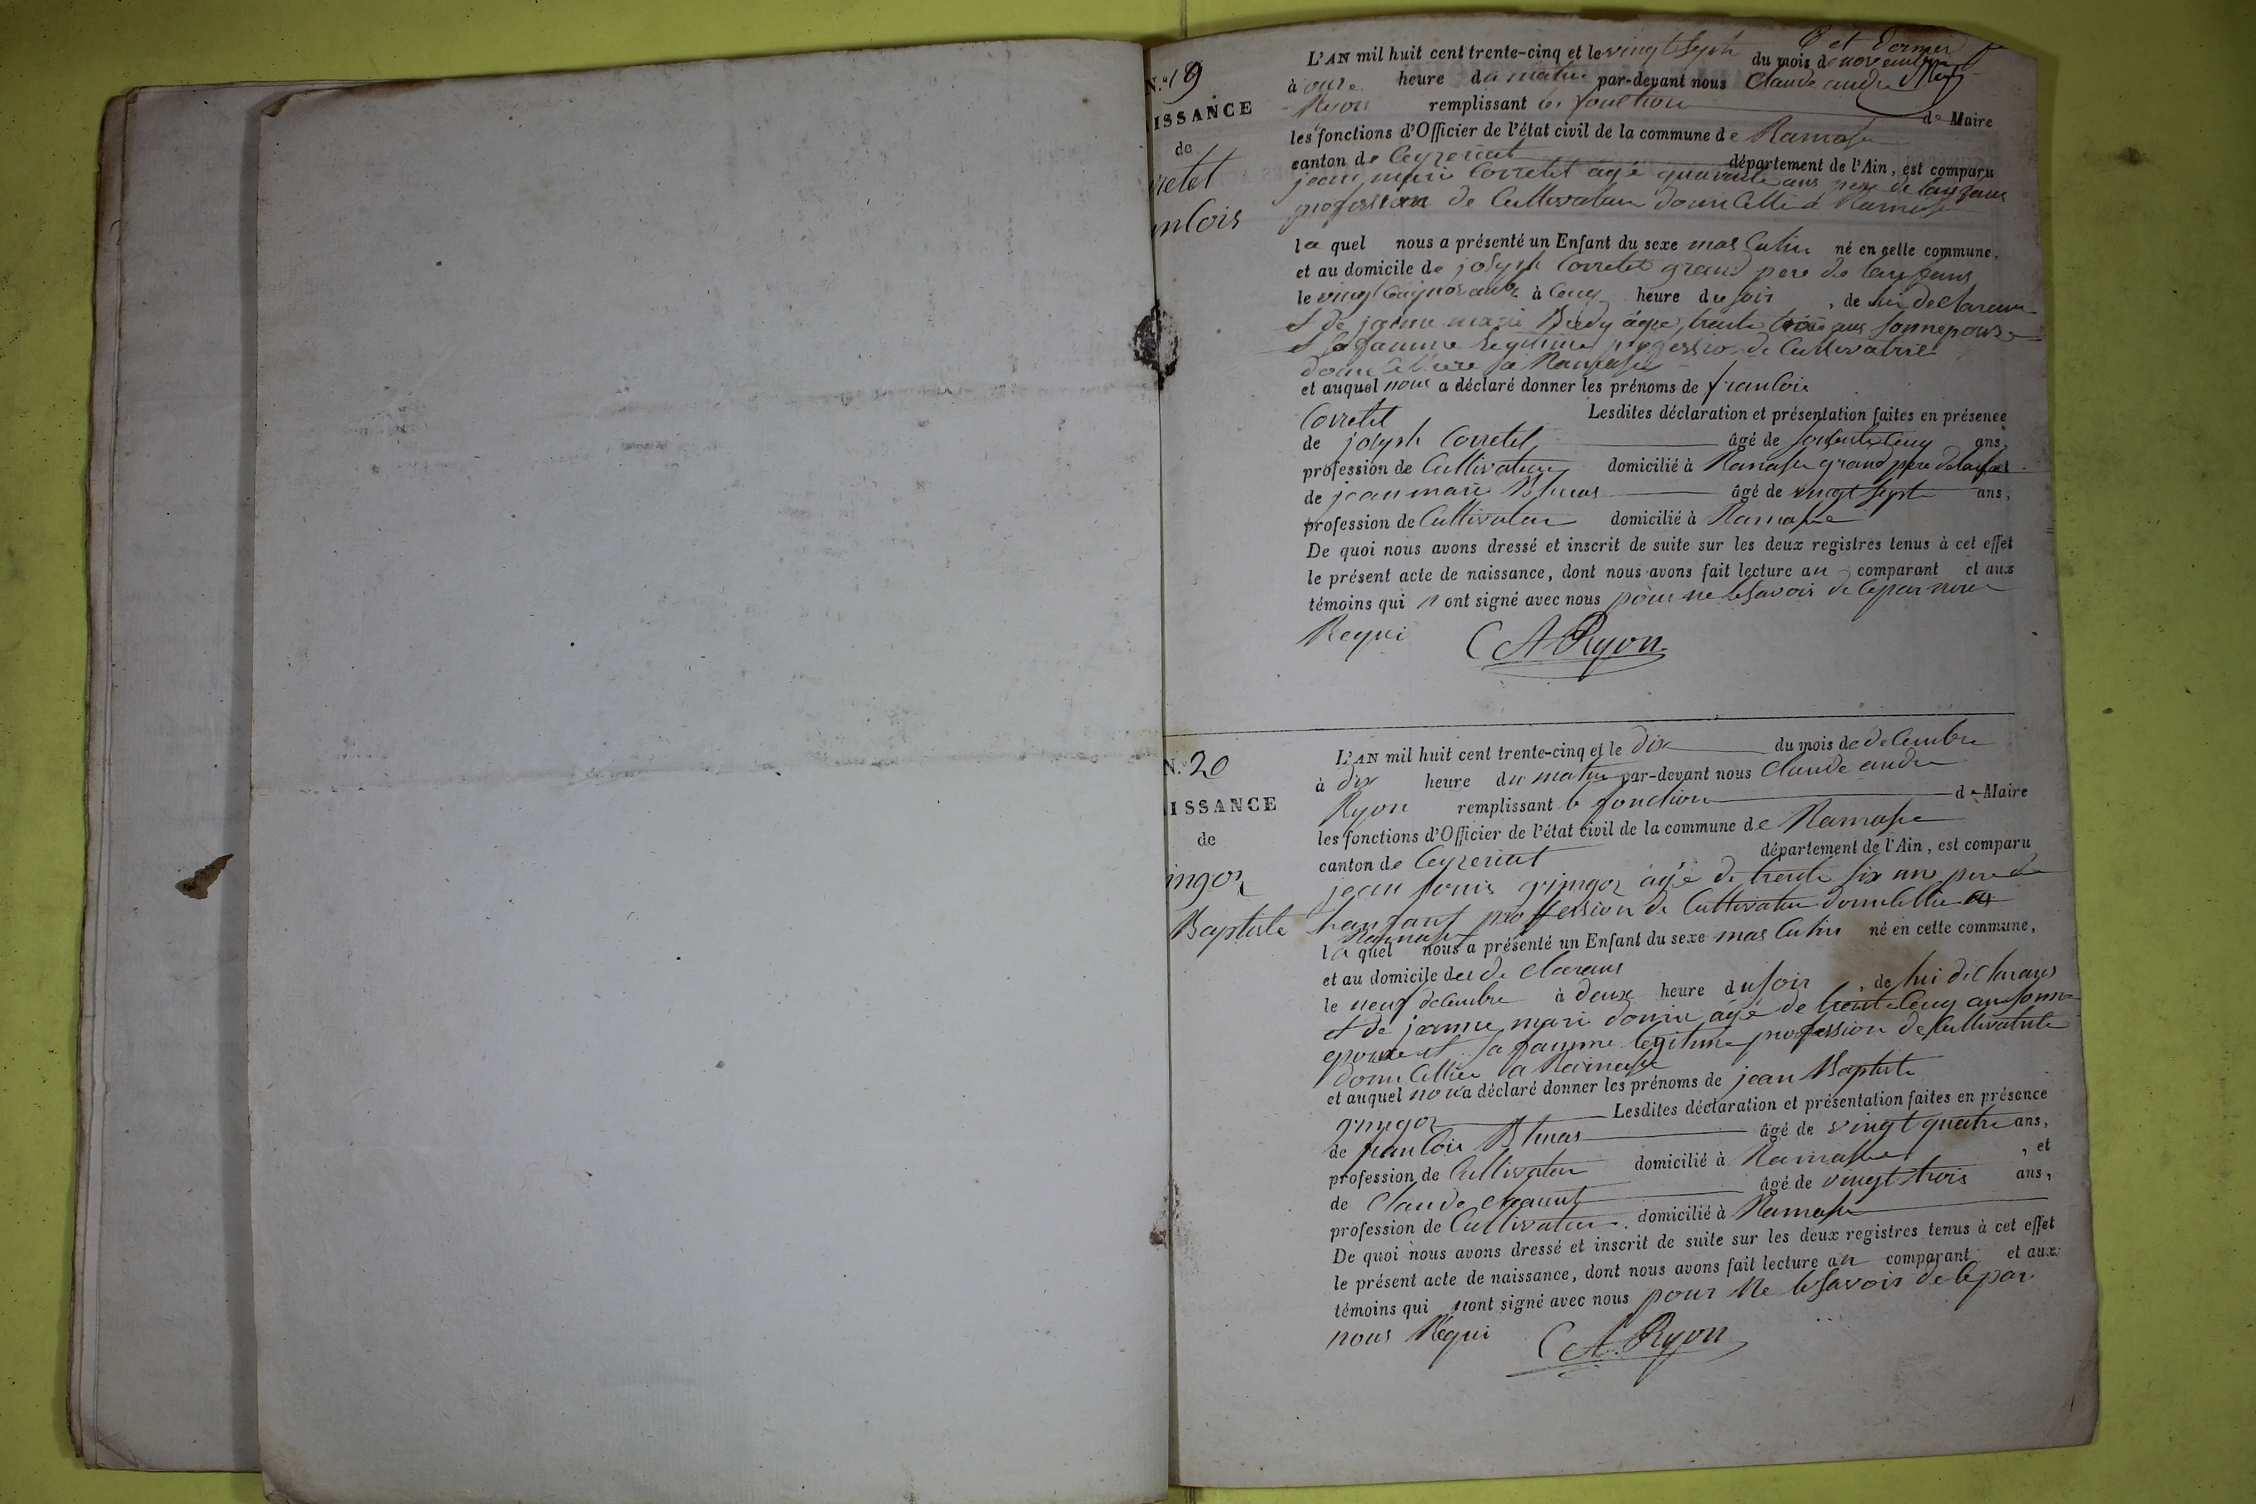 8 et dernier
N.° 19
ISSANCE
de
rretet
anlois
L'AN mil huit cent trente-cinq et le vingt sept du mois de novembre
à onze heure du matin par-devant nous Claude andre
Ryon remplissant les fonction de Maire
les fonctions d'Officier de l'état civil de la commune de Ramasse
canton de Ceyzeriat département de l'Ain, est comparu
jean marie Corretet agé quarente ans pere de lanfans
profession de Cultivateur domicillié a Ramasse
le quel nous a présenté un Enfant du sexe mas Culin né en celle commune,
et au domicile de joseph Corretet grand pere de lanfans
le vingt à Cinq heure du soir , de lui declarant
et de jeanne marie agee trente trois ans sonnepouse
et sa famme legitime profession de Cultivatrice
domicilliée a Ramasse
et auquel nous a déclaré donner les prénoms de franlois
Corretet Lesdites déclaration et présentation faites en présence
de joseph Corretet âgé de soisente Cinq ans,
profession de Cultivateur domicilié à Ramasse grand pere de lanfant
de jean marie âgé de vingt sept ans,
profession de Cultivateur domicilié à Ramasse
De quoi nous avons dressé et inscrit de suite sur les deux registres tenus à cet effet
le présent acte de naissance, dont nous avons fait lecture au comparant et aux
témoins qui n ont signé avec nous pour ne le savoir de le par nous
Requi C A Ryon
N.° 20
ISSANCE
de
ingoz
Baptiste
L'AN mil huit cent trente-cinq et le dix du mois de decembre
à dix heure du matin par-devant nous Claude andre
Ryon remplissant le fonction de Maire
les fonctions d'Officier de l'état civil de la commune de Ramasse
canton de Ceyzeriat département de l'Ain, est comparu
jean louis gringoz agé de trente six ans pere de
lanfant proffession de Cultivateur domicillié a
Ramasse
le quel nous a présenté un Enfant du sexe mas Culin né en cette commune,
et au domicile du de Clarans
le neuf decembre à deux heure du soir , de lui de Clarans
et de jeanne marie agé de trente Cinq ans sonn
epouse et sa famme legitime profession de Cultivatrice
domicilliée a Ramasse
et auquel nous a déclaré donner les prénoms de jean Baptiste
gringoz Lesdites déclaration et présentation faites en présence
de franlois âgé de vingt quatre ans,
profession de Cultivateur domicilié à Ramasse , et
de Claude âgé de vingt trois ans,
profession de Cultivateur domicilié à Ramasse
De quoi nous avons dressé et inscrit de suite sur les deux registres tenus à cet effet
le présent acte de naissance, dont nous avons fait lecture au comparant et aux
témoins qui nont signé avec nous pour ne le savoir de le par
nous Requi C A. Ryon